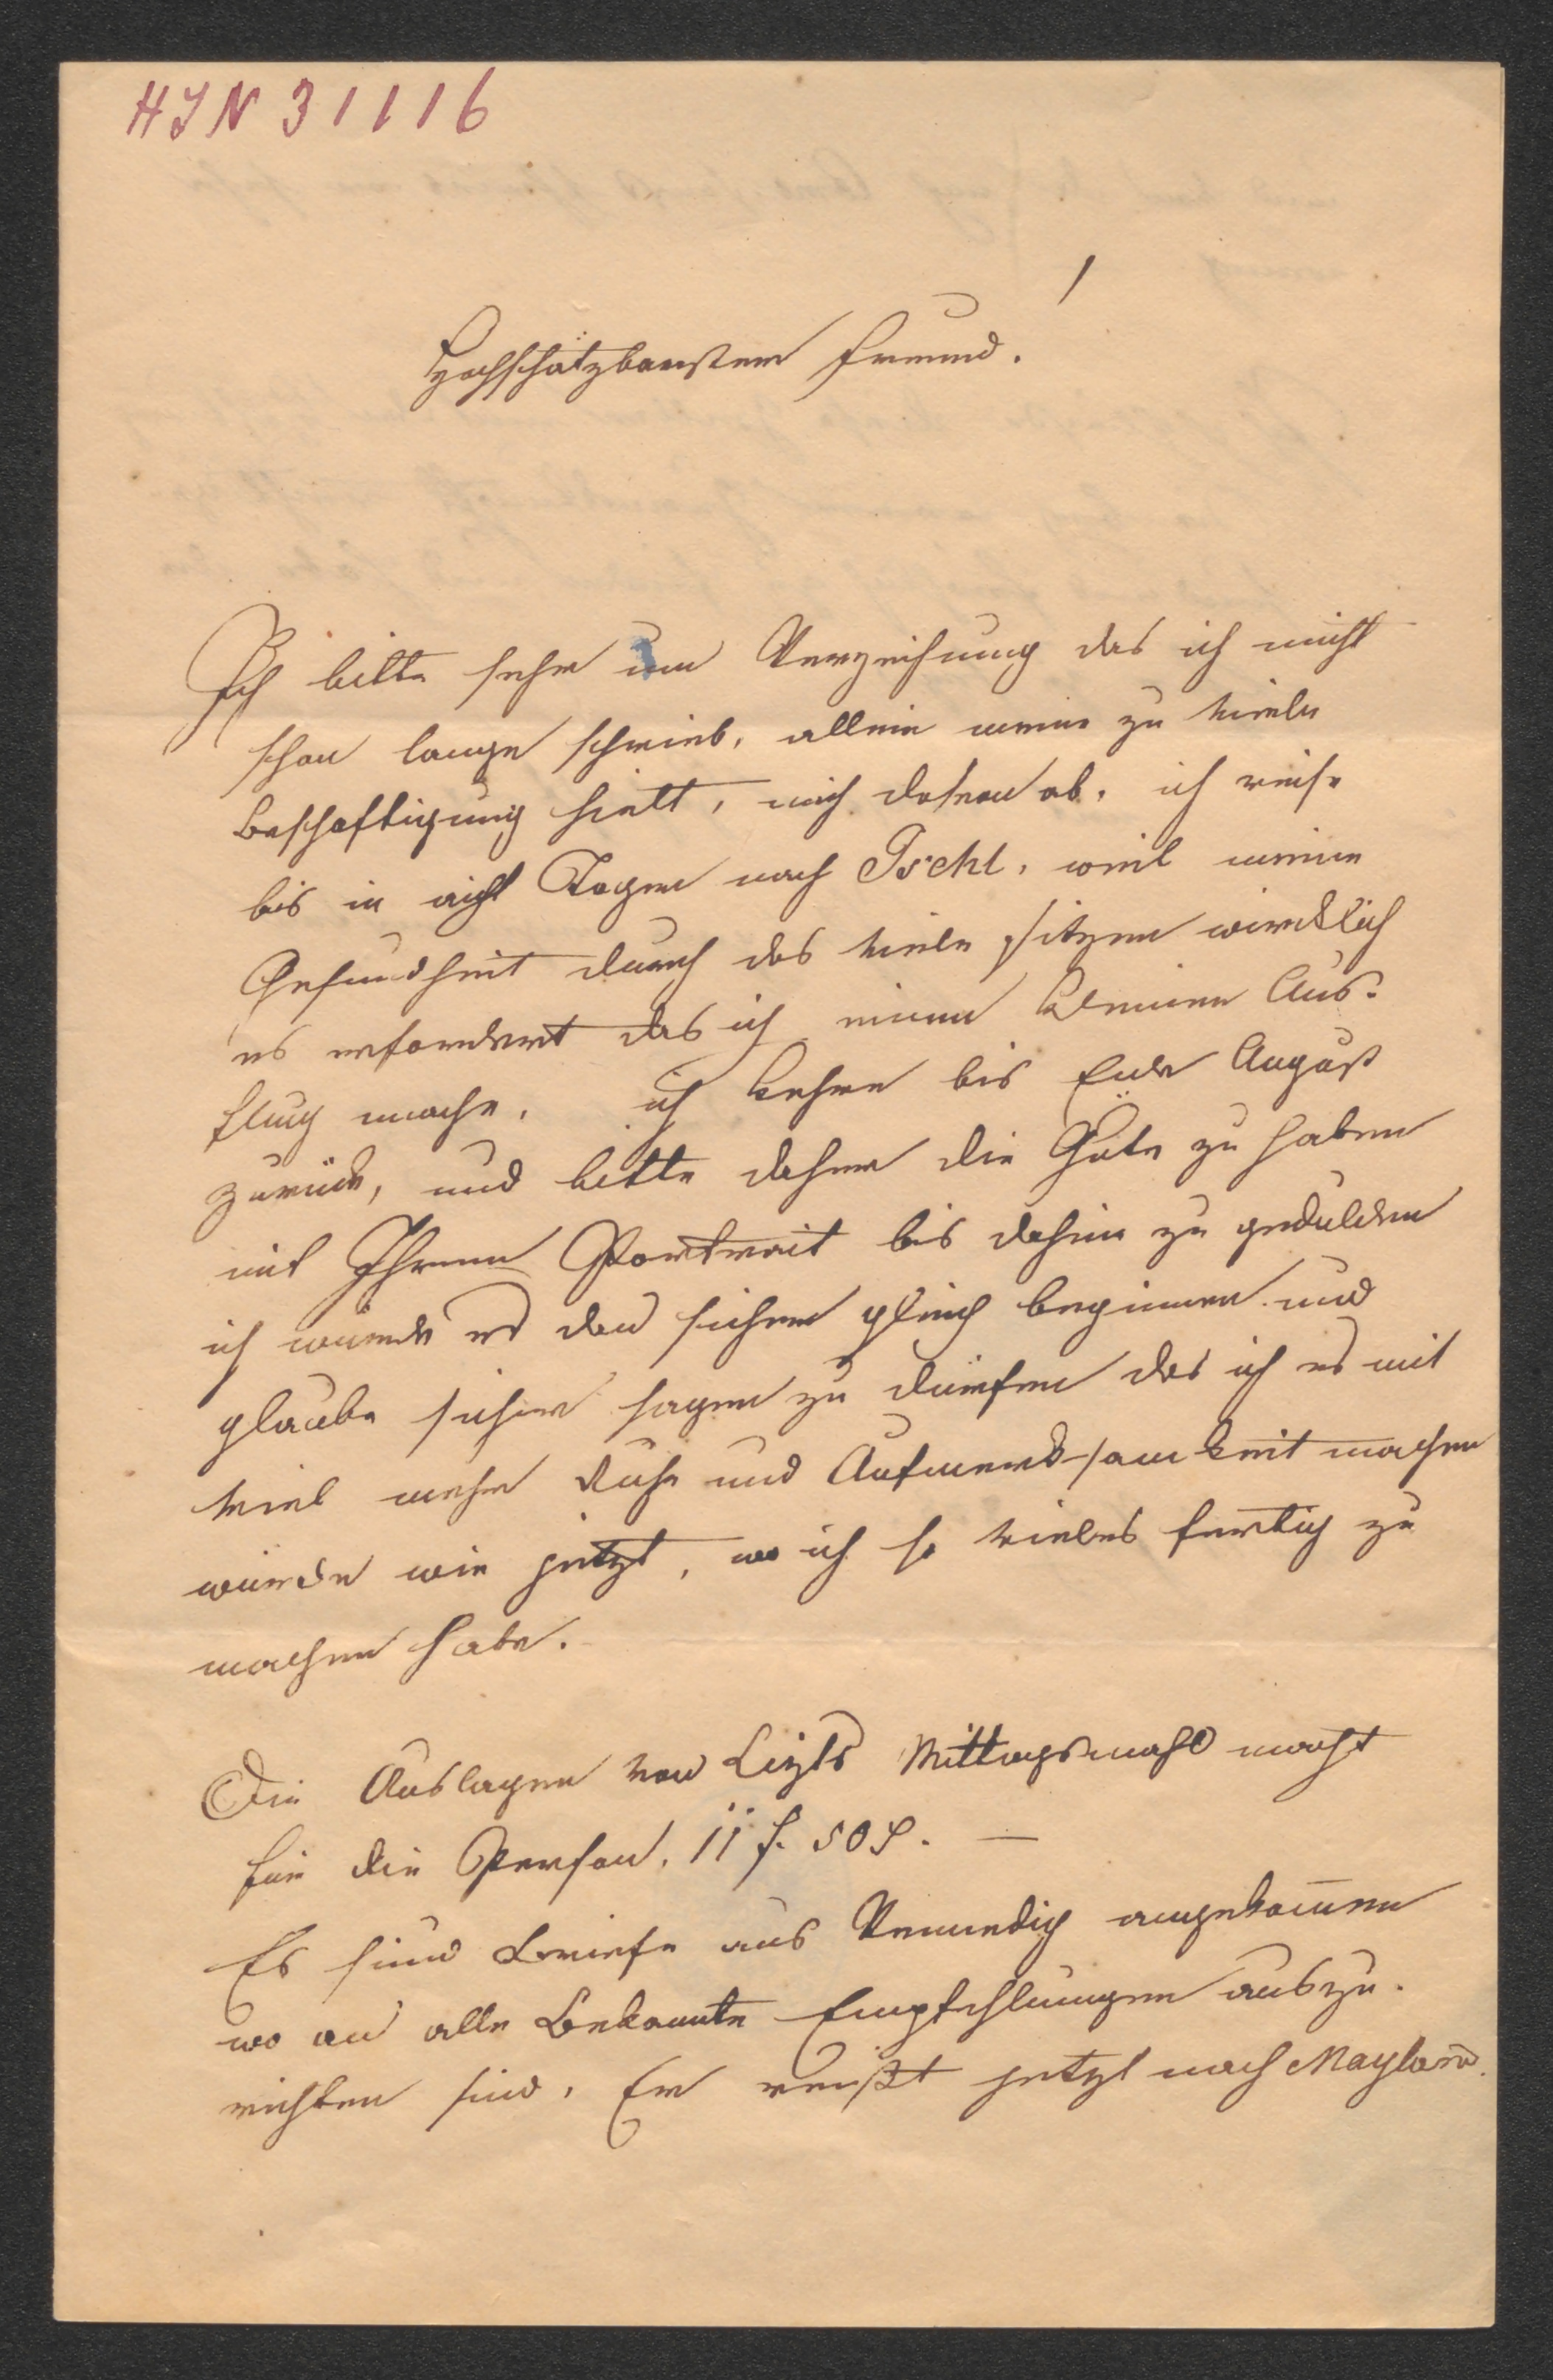 HJN 31116
Hochschätzbarster Freund!
Ich bitte sehr um Verzeihung das ich nicht
schon lange schrieb, allein meine zu viele
Beschäftigung hielt, mich davon ab, ich reise
bis in acht Tagen nach Ischl, weil meine
Gesundheit durch das viele sitzen wircklich
es erfordert das ich einen kleinen Aus-
flug mache. ich kehre bis Ende August
zurück, und bitte daher die Güte zu haben
mit Ihrem Portrait bis dahin zu gedulden
ich würde es dan sicher gleich beginnen und
glaube sicher sagen zu dürfen das ich es mit
viel mehr Ruhe und Aufmerksamkeit machen
würde wie jetzt, wo ich so vieles fertig zu
machen habe.
Die Auslagen von Lizts Mittagsmahl macht
für die Person. 11 f. 50
Es sind Briefe aus Vennedig angekommen
wo an alle Bekannte Empfehlungen auszu-
richten sind. Er reißt jetzt nach Mayland.